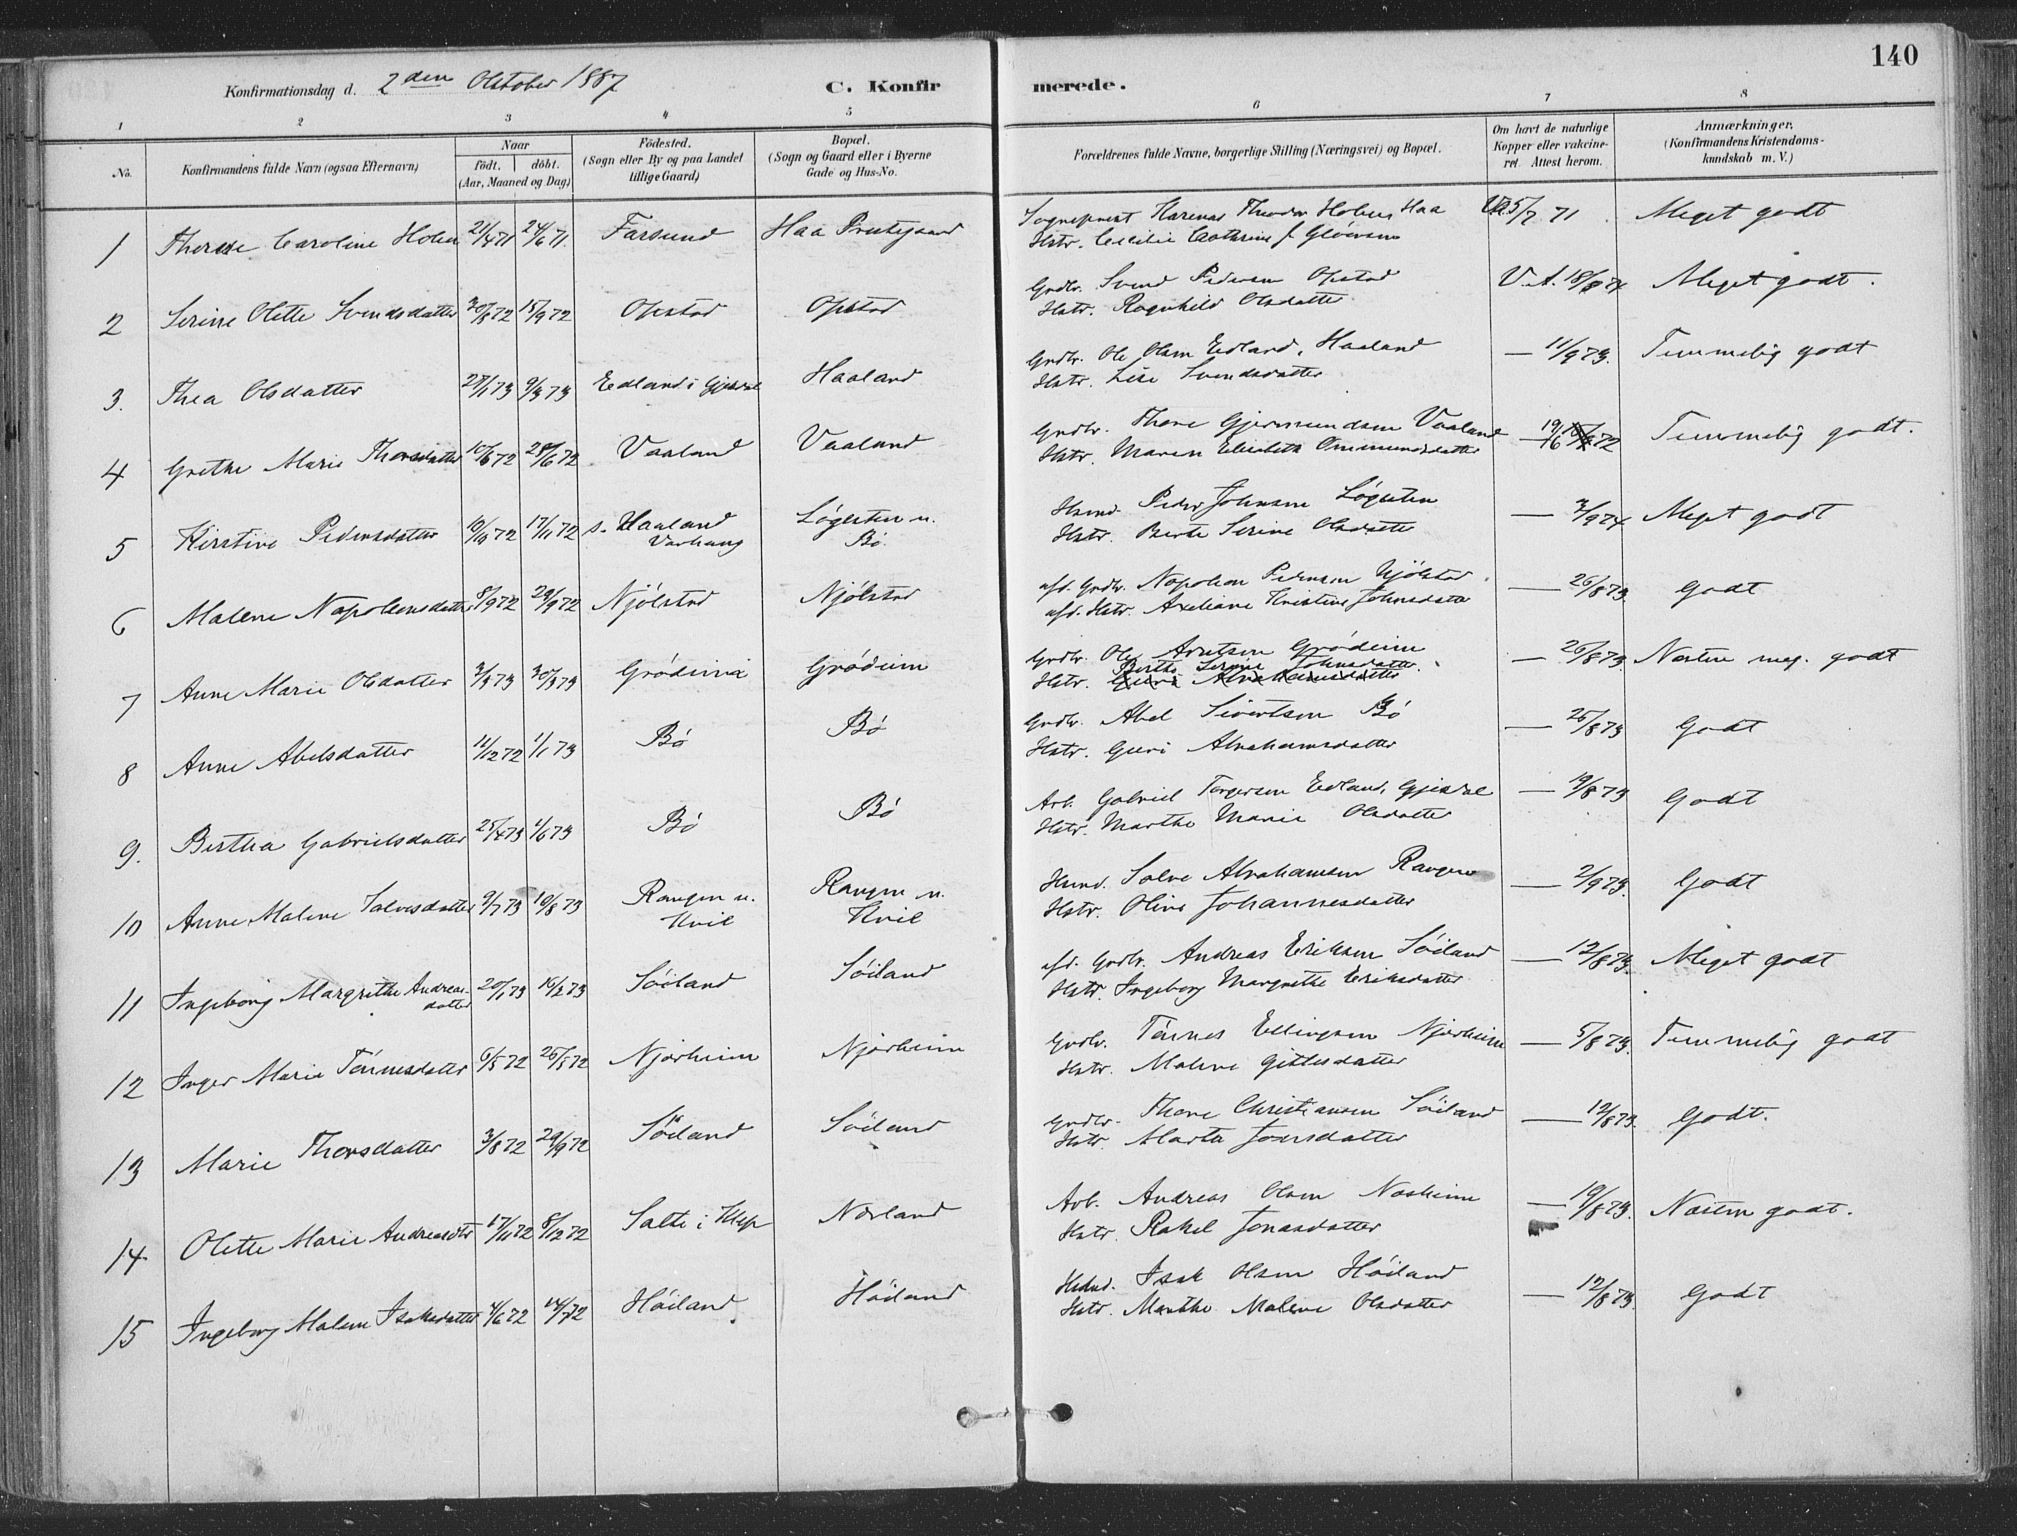 140
Konfirmationsdag d. 2den Oktober 1887 C. Konfirmerede.
1 2 3 4 5 6 7 8
No. Konfirmandens fulde Navn (ogsaa Efternavn) Naar født. døbt. (Aar, Maaned og Dag) Fødested. (Sogn eller By og paa Landet tillige Gaard) Bopæl. (Sogn og Gaard eller i Byerne Gade og Hus-No. Forældrenes fulde Navne, borgerlige Stilling (Næringsvei) og Bopæl. Om havt de naturlige Kopper eller vakcineret. Attest herom. Anmærkninger. (Konfirmandens Kristendomskundskab m. V.)
1 Therese Caroline Holen 21/4 71 24/6 71. Farsund Haa Prestegaard Sogneprest Theodor Holen Haa V.A. 5/7 71 Meget godt
Hstr. Cecilie Cathrine f.
2 Serine Olette Svendsdatter 30/8 72 15/9 72 Opstad Opstad Grdbr. Svend Pedersen Opstad V.A. 18/8 74 Meget godt.
Hstr. Ragnhild Olsdatter
3. Thea Olsdatter 27/1 73 9/3 73 Edland i Gjesdal Haaland Grdbr. Ole Olsen Edland, Haaland — 11/9 73. Temmelig godt
Hstr. Lise Svendsdatter
4 Grethe Marie Thorsdatter 10/6 72 28/6 72 Vaaland Vaaland Grdbr. Thore Gjermundsen Vaaland — 19/6 72 Temmelig godt.
Hstr. Maren Elisabeth Ommundsdatter
5 Kirstine Pedersdatter 10/10 72 17/11 72 s. Haaland Varhaug Løgesten u. Bø. Husmd. Peder Johnsen Løgesten — 3/9 74 Meget godt
Hstr. Berte Serine Olsdatter
6 Malene Napoleonsdatter 8/9 72 29/9 72 Njølstad Njølstad afd. Grdbr. Napoleon Pedersen Njølstad. — 26/8 73. Godt
afd. Hstr. Axeliane Kristine Johnsdatter
7 Anne Marie Olsdatter 3/3 73 30/3 73 Grødeim Grødeim Grdbr. Ole Grødeim — 26/8 73 Næsten meg. godt
Hstr. Berthe Serine Johnsdatter
8 Anne Abelsdatter 11/12 72 1/1 73 Bø Bø Grdbr. Abel Sivertsen Bø — 25/8 73 Godt
Hstr. Guri Abrahamsdatter
9. Bertha Gabrielsdatter 25/4 73 1/6 73 Bø Bø Arb. Gabriel Torgersen Edland, Gjesdal — 19/8 73 Godt
Hstr. Marthe Marie Olsdatter
10 Anne Malene Salvesdatter 9/7 73 10/8 73 Rangen u. Kvil Rangen u. Kvil Husmd. Salve Abrahamsen Rangen — 2/9 73. Godt
Hstr. Oline Johannesdatter
11 Ingeborg Margrethe Andreasdatter 20/1 73 16/2 73 Søiland Søiland afd. Grdbr. Andreas Eriksen Søiland — 12/8 73. Meget godt
Hstr. Ingeborg Margrethe Eriksdatter
12 Inger Marie Tønnesdatter 6/5 72 26/5 72 Njærheim Njærheim Grdbr. Tønnes Ellingsen Njærheim — 5/8 73. Temmelig godt
Hstr. Malene Gitlesdatter
13 Marie Thorsdatter 3/8 72 29/9 72 Søiland Søiland Grdbr. Thore Christiansen Søiland — 12/8 73. Godt.
Hstr. Marta Jonsdatter
14 Olette Marie Andreasdtr 17/11 72 8/12 72 Salte i Klep Nærland Arb. Andreas Olsen — 19/8 73. Næsten godt.
Hstr. Rakel Jonasdatter
15 Ingeborg Malene Isaksdatter 4/6 72 14/7 72 Høiland Høiland Husmd. Isak Olsen Høiland — 12/8 73. Godt
Hstr. Marthe Malene Olsdatter